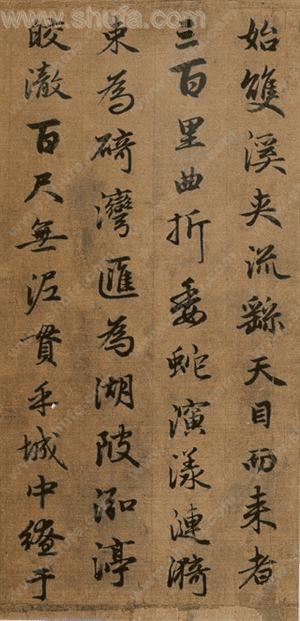 www.shufa.com
始雙溪夾流繇天目而来者
三百里曲折委蛇演漾漣漪
束為碕灣匯為湖陂泓渟
皎澈百尺無泥貫乎城中繚于